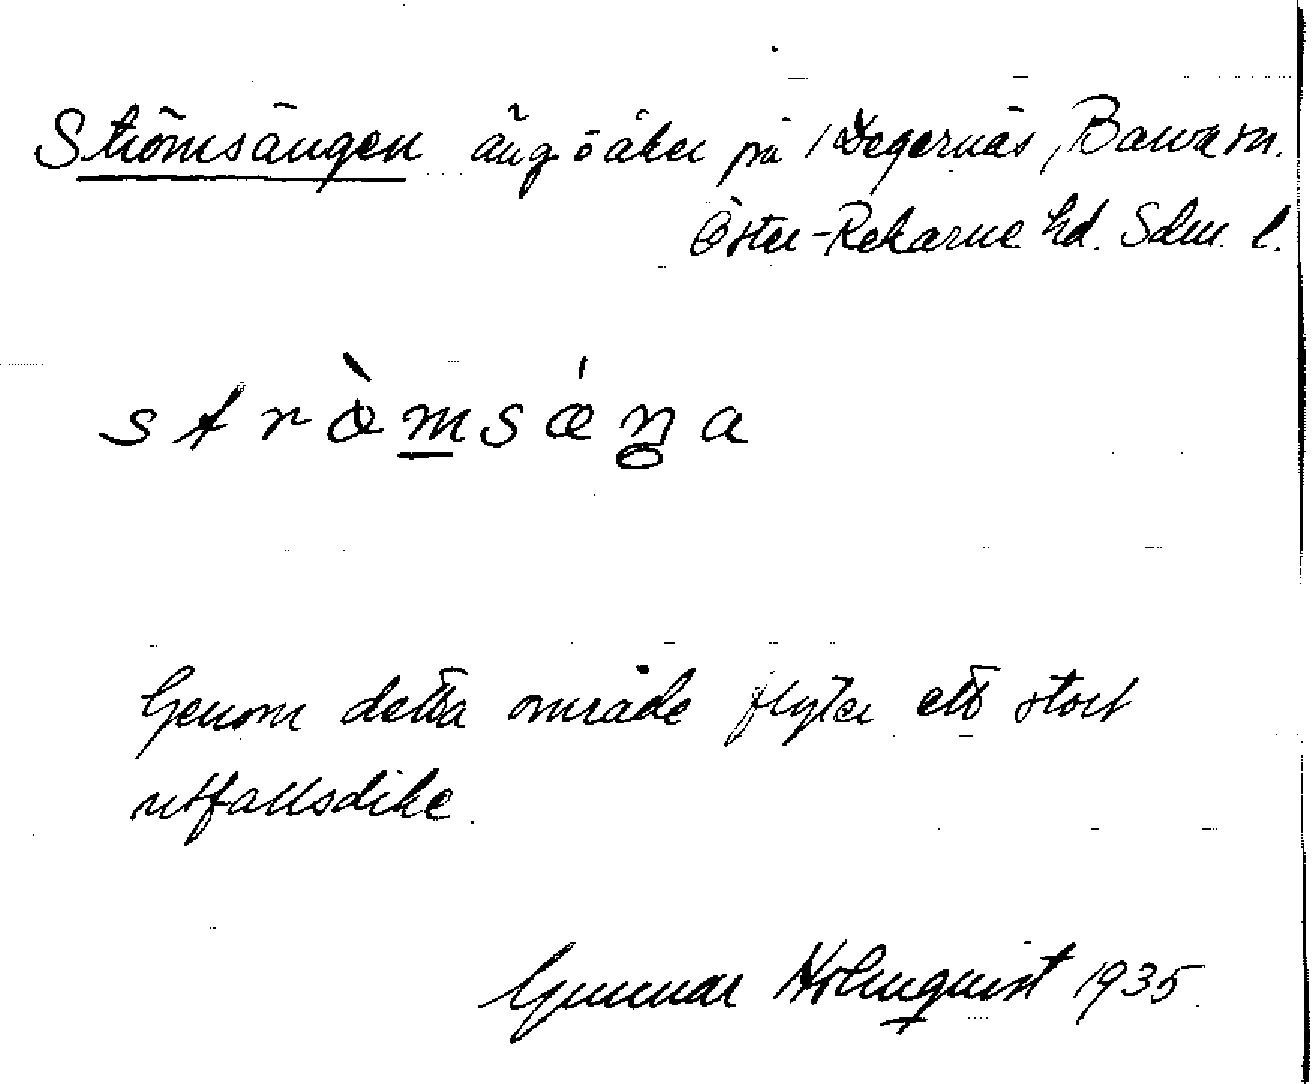 Strömsängen äng o åker på Degernäs, Barva sn.
Öster-Rekarne hd. Sdm. l.
strø̀msǽŋa
Genom detta område flyter ett stort
utfallsdike.
Gunnar Holmquist 1935.